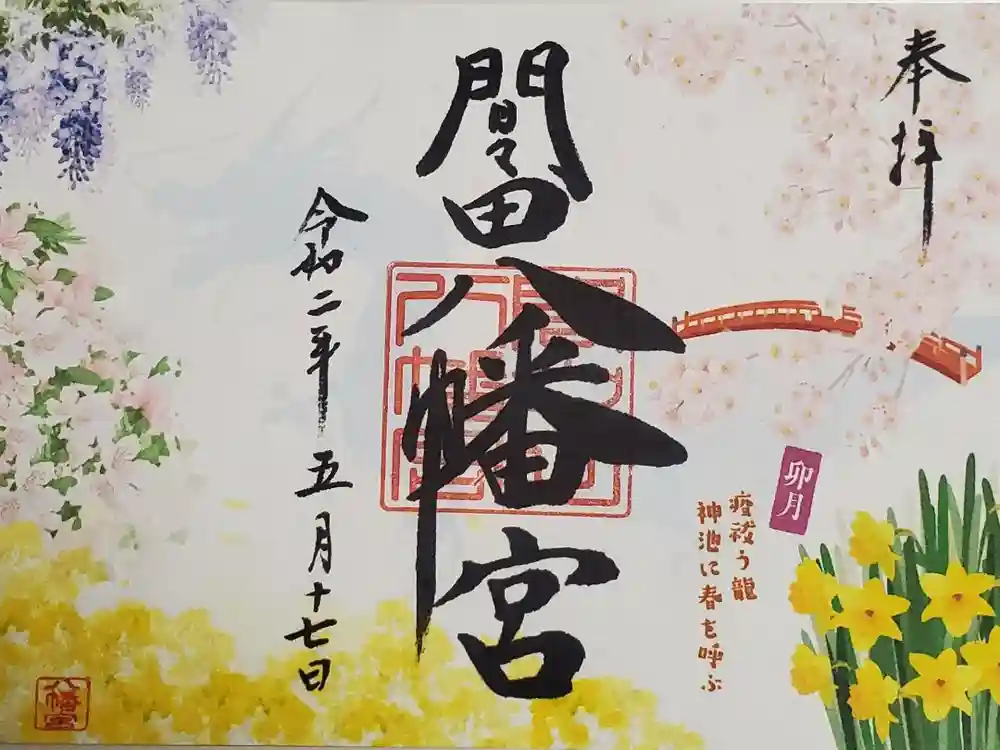 奉拝
間々田八幡宮
令和二年五月十七日
卯月
疫祓う龍
神池に春を呼ぶ
八幡宮